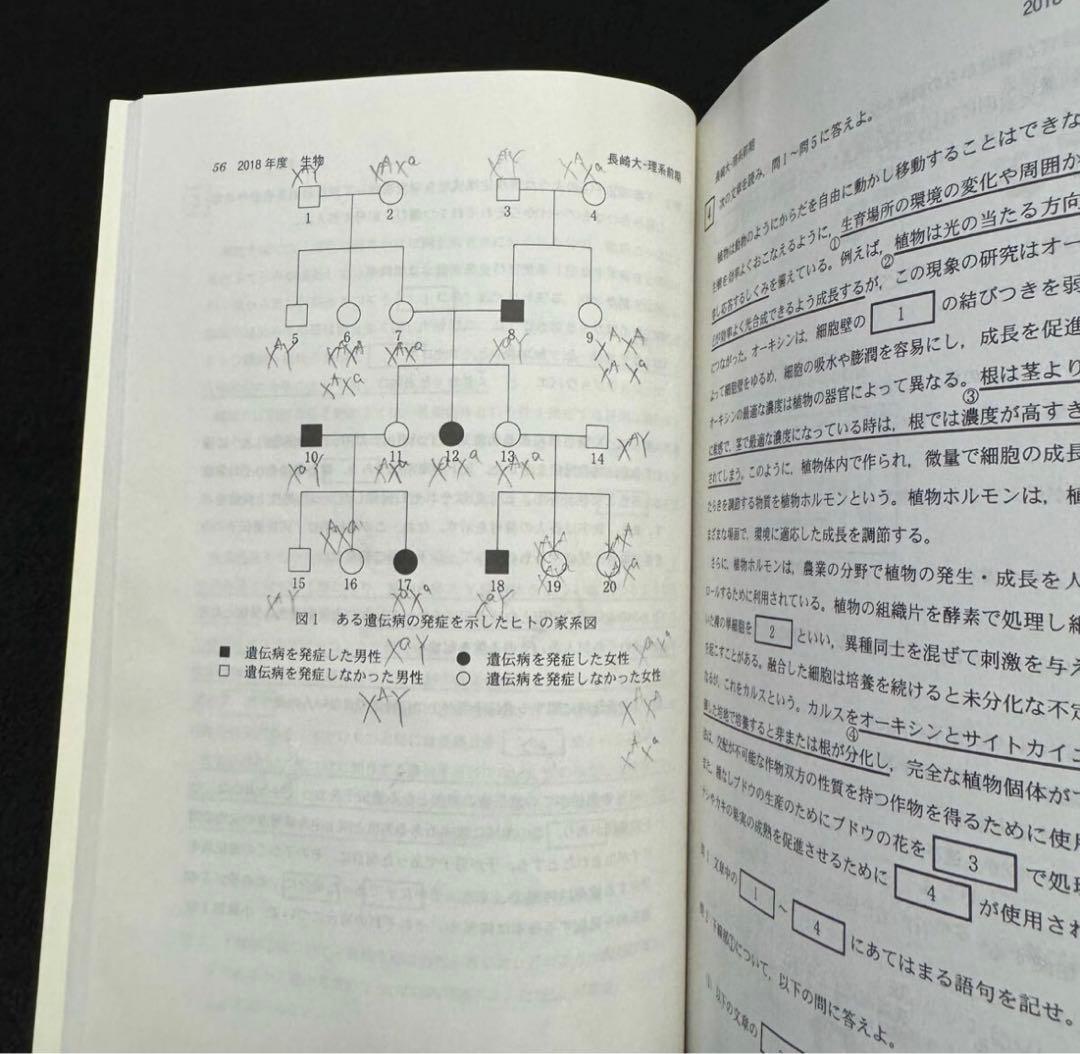 56 2018年度 生物
長崎大-理系前期
XAY
XAXa
XAY
XAXa
1
2
3
4
5
6
7
8
9
XAY
XAXA
XAXa
XaY
XAXA
XAXa
XAXa
10
11
12
13
14
XaY
XAXa
XaXa
XAXa
XAY
XAXA
15
16
17
18
19
20
XAY
XaXa
XaY
図1 ある遺伝病の発症を示したヒトの家系図
■ 遺伝病を発症した男性 XaY
● 遺伝病を発症した女性 XaXa
□ 遺伝病を発症しなかった男性
○ 遺伝病を発症しなかった女性
XAY
XAXA
XAXa
2018
長崎大-理系前期
4 次の文章を読み,問1~問5に答えよ。
植物は動物のようにからだを自由に動かし移動することはできな
生育場所の環境の変化や周囲か
①
応答するしくみを備えている。例えば,植物は光の当たる方向
②
が効率よく光合成できるよう成長するが,この現象の研究はオー
につながった。オーキシンは,細胞壁の 1 の結びつきを弱
よって細胞壁をゆるめ,細胞の吸水や膨潤を容易にし,成長を促進
オーキシンの最適な濃度は植物の器官によって異なる。根は茎より
③
に敏感で,茎で最適な濃度になっている時は,根では濃度が高すき
されてしまう。このように,植物体内で作られ,微量で細胞の成長
たらきを調節する物質を植物ホルモンという。植物ホルモンは,植
まざまな場面で,環境に適応した成長を調節する。
さらに,植物ホルモンは,農業の分野で植物の発生・成長を人
ロールするために利用されている。植物の組織片を酵素で処理し細
いた裸の単細胞を 2 といい,異種同士を混ぜて刺激を与え
を起こすことがある。融合した細胞は培養を続けると未分化な不定
なるが,これをカルスという。カルスをオーキシンとサイトカイニ
④
した培地で培養すると芽または根が分化し,完全な植物個体が
は,交配が不可能な作物双方の性質を持つ作物を得るために使用
また,種なしブドウの生産のためにブドウの花を 3 で処理
ナシやカキの果実の成熟を促進させるために 4 が使用され
問1 文章中の 1 ~ 4 にあてはまる語句を記せ。
問2 下線部①について,以下の問に答えよ。
以下の文章の